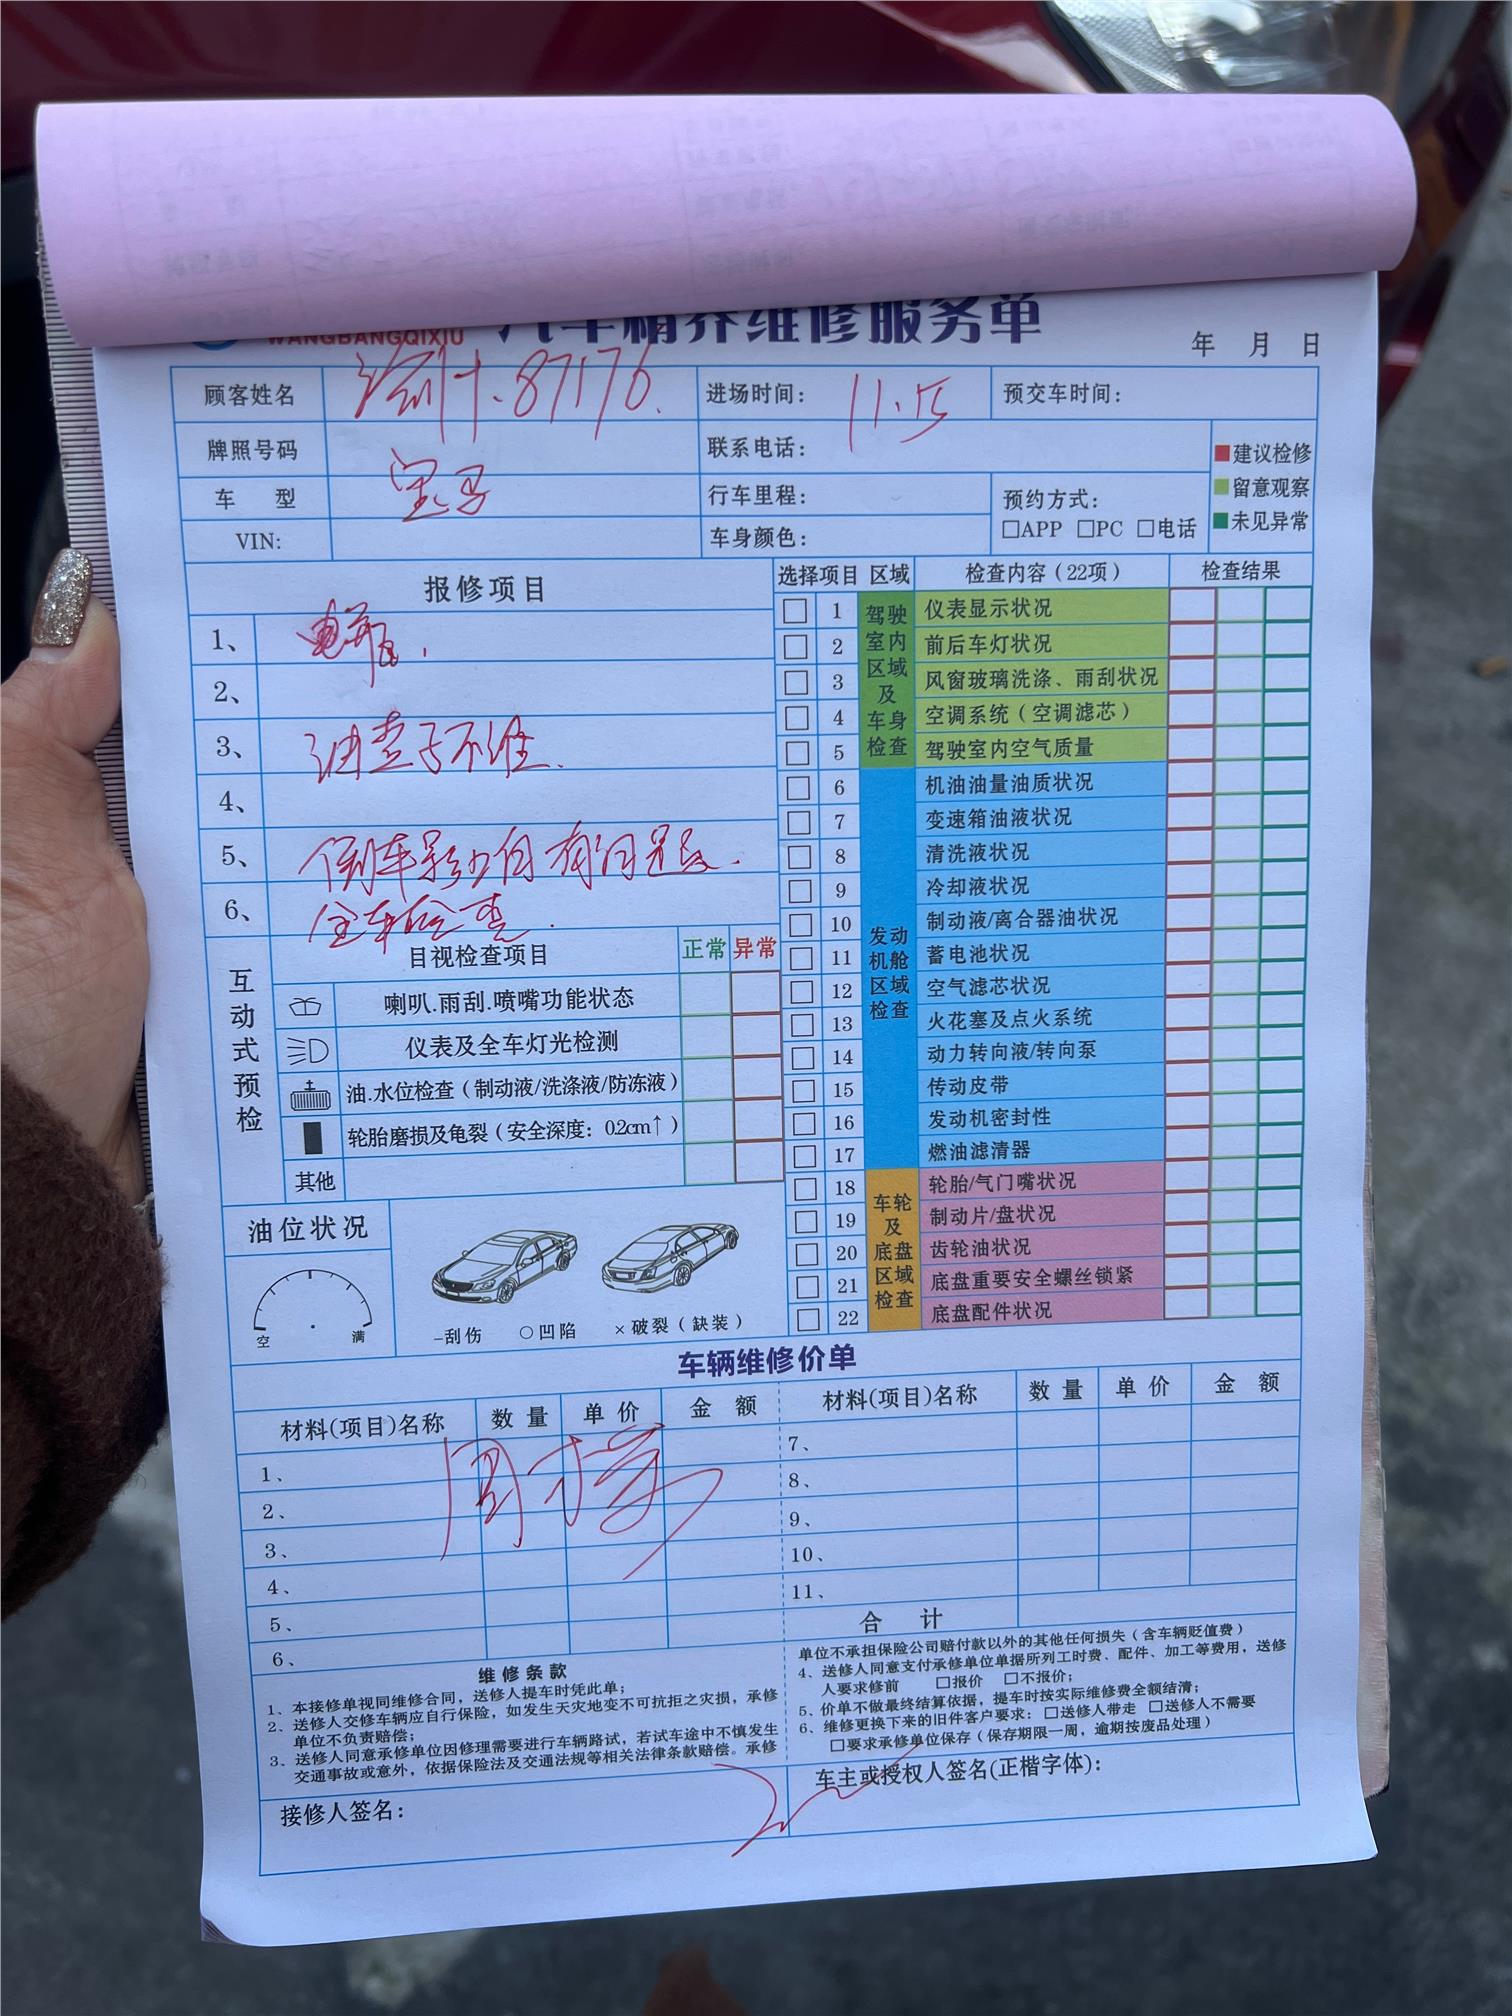 WANGBANGQIXIU 汽车精养维修服务单
年 月 日
顾客姓名 87176. 进场时间: 11.15 预交车时间:
牌照号码 联系电话:
车 型 宝马 行车里程: 预约方式:
□APP □PC □电话
VIN: 车身颜色:
建议检修
留意观察
未见异常
报修项目
1、
2、
3、 油表子不准.
4、
5、 倒车影像有问题.
6、 全车检查.
选择项目 区域 检查内容(22项) 检查结果
驾驶室内区域及车身检查
□ 1 仪表显示状况
□ 2 前后车灯状况
□ 3 风窗玻璃洗涤、雨刮状况
□ 4 空调系统(空调滤芯)
□ 5 驾驶室内空气质量
发动机舱区域检查
□ 6 机油油量油质状况
□ 7 变速箱油液状况
□ 8 清洗液状况
□ 9 冷却液状况
□ 10 制动液/离合器油状况
□ 11 蓄电池状况
□ 12 空气滤芯状况
□ 13 火花塞及点火系统
□ 14 动力转向液/转向泵
□ 15 传动皮带
□ 16 发动机密封性
□ 17 燃油滤清器
车轮及底盘区域检查
□ 18 轮胎/气门嘴状况
□ 19 制动片/盘状况
□ 20 齿轮油状况
□ 21 底盘重要安全螺丝锁紧
□ 22 底盘配件状况
互动式预检
目视检查项目 正常 异常
喇叭.雨刮.喷嘴功能状态
仪表及全车灯光检测
油.水位检查(制动液/洗涤液/防冻液)
轮胎磨损及龟裂(安全深度: 0.2cm↑)
其他
油位状况
空 满
-刮伤 ○凹陷 ×破裂(缺装)
车辆维修价单
材料(项目)名称 数量 单价 金额 材料(项目)名称 数量 单价 金额
1、 7、
2、 8、
3、 9、
4、 10、
5、 11、
6、 合 计
周
维修条款
1、本接修单视同维修合同，送修人提车时凭此单；
2、送修人交修车辆应自行保险，如发生天灾地变不可抗拒之灾损，承修
单位不负责赔偿；
3、送修人同意承修单位因修理需要进行车辆路试，若试车途中不慎发生
交通事故或意外，依据保险法及交通法规等相关法律条款赔偿。承修
单位不承担保险公司赔付款以外的其他任何损失(含车辆贬值费)
4、送修人同意支付承修单位单据所列工时费、配件、加工等费用，送修
人要求修前 □报价 □不报价；
5、价单不做最终结算依据，提车时按实际维修费全额结清；
6、维修更换下来的旧件客户要求：□送修人带走 □送修人不需要
□要求承修单位保存(保存期限一周，逾期按废品处理)
接修人签名：
车主或授权人签名(正楷字体)：